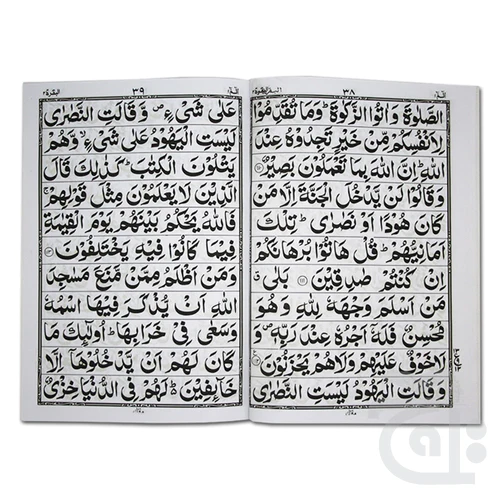 ٣٨
الصَّلٰوةَ وَ اٰتُوا الزَّكٰوةَ ؕ وَمَا تُقَدِّمُوْا
لِاَنْفُسِكُمْ مِّنْ خَیْرٍ تَجِدُوْهُ عِنْدَ
اللّٰهِ ؕ اِنَّ اللّٰهَ بِمَا تَعْمَلُوْنَ بَصِیْرٌ
وَ قَالُوْا لَنْ یَّدْخُلَ الْجَنَّةَ اِلَّا مَنْ
كَانَ هُوْدًا اَوْ نَصٰرٰی ؕ تِلْكَ
اَمَانِیُّهُمْ ؕ قُلْ هَاتُوْا بُرْهَانَكُمْ
اِنْ كُنْتُمْ صٰدِقِیْنَ ﴿١١١﴾ بَلٰی ق
مَنْ اَسْلَمَ وَجْهَهٗ لِلّٰهِ وَ هُوَ
مُحْسِنٌ فَلَهٗۤ اَجْرُهٗ عِنْدَ رَبِّهٖ ص وَ
لَا خَوْفٌ عَلَیْهِمْ وَلَا هُمْ یَحْزَنُوْنَ
وَ قَالَتِ الْیَهُوْدُ لَیْسَتِ النَّصٰرٰی
٣٩
البقرة ٢
عَلٰی شَیْءٍ ص وَّ قَالَتِ النَّصٰرٰی
لَیْسَتِ الْیَهُوْدُ عَلٰی شَیْءٍ ۙ وَّ هُمْ
یَتْلُوْنَ الْكِتٰبَ ؕ كَذٰلِكَ قَالَ
الَّذِیْنَ لَا یَعْلَمُوْنَ مِثْلَ قَوْلِهِمْ ج
فَاللّٰهُ یَحْكُمُ بَیْنَهُمْ یَوْمَ الْقِیٰمَةِ
فِیْمَا كَانُوْا فِیْهِ یَخْتَلِفُوْنَ
وَمَنْ اَظْلَمُ مِمَّنْ مَّنَعَ مَسٰجِدَ
اللّٰهِ اَنْ یُّذْكَرَ فِیْهَا اسْمُهٗ
وَ سَعٰی فِیْ خَرَابِهَا ؕ اُولٰٓئِكَ مَا
كَانَ لَهُمْ اَنْ یَّدْخُلُوْهَاۤ اِلَّا
خَآئِفِیْنَ ؕ۬ لَهُمْ فِی الدُّنْیَا خِزْیٌ